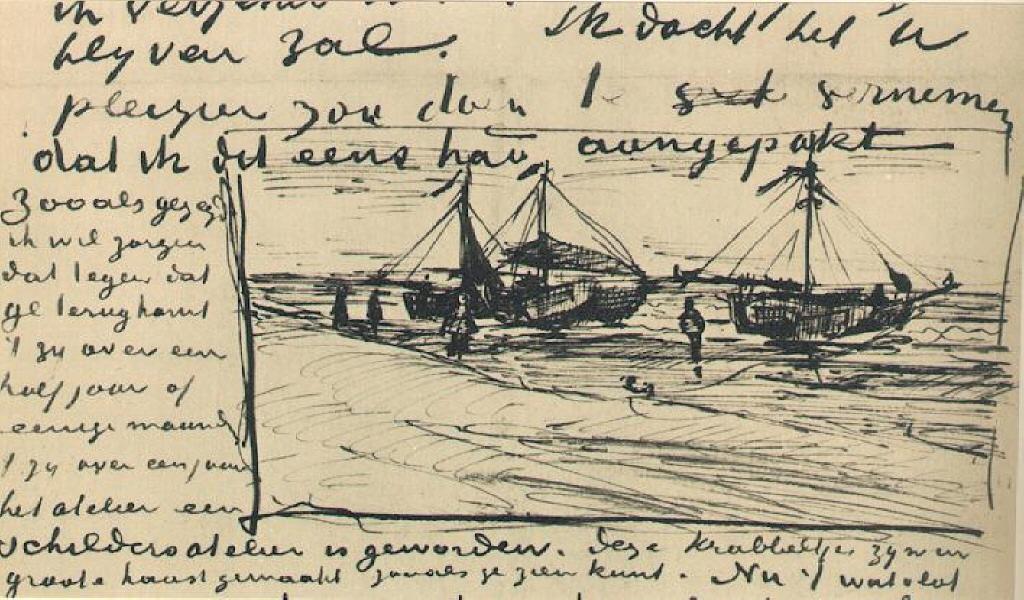 blyven zal. Ik dacht het U
pleizier zou doen te vernemen
dat ik dit eens had aangepakt
Zooals gezegd
ik wil zorgen
dat tegen dat
ge terugkomt
't zy over een
half jaar of
eenige maand
't zy over een jaar
het atelier een
schildersatelier is geworden. Deze krabbeltjes zyn in
groote haast gemaakt zooals ge zien kunt. Nu 't wat vlot